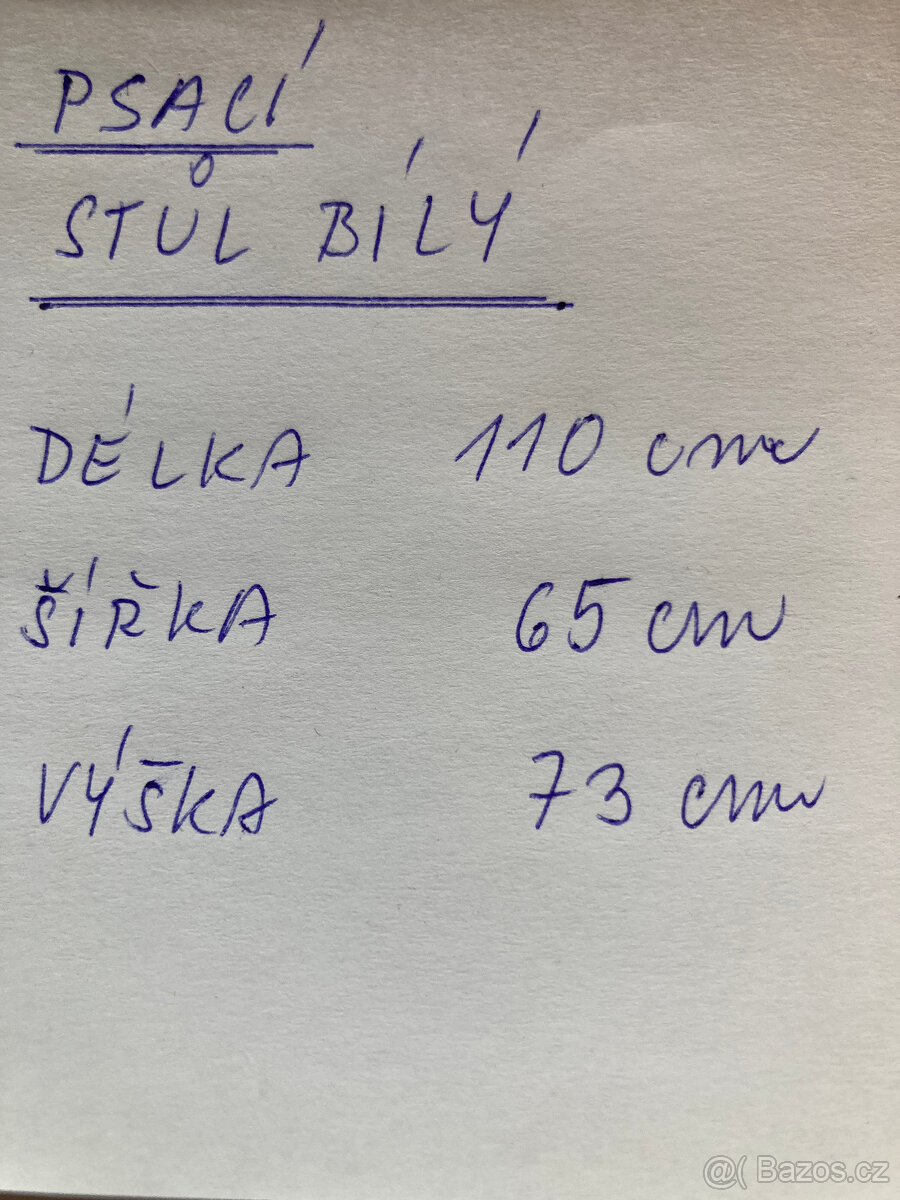 PSACÍ
STŮL BÍLÝ
DÉLKA 110 cm
ŠÍŘKA 65 cm
VÝŠKA 73 cm
@( Bazos.cz